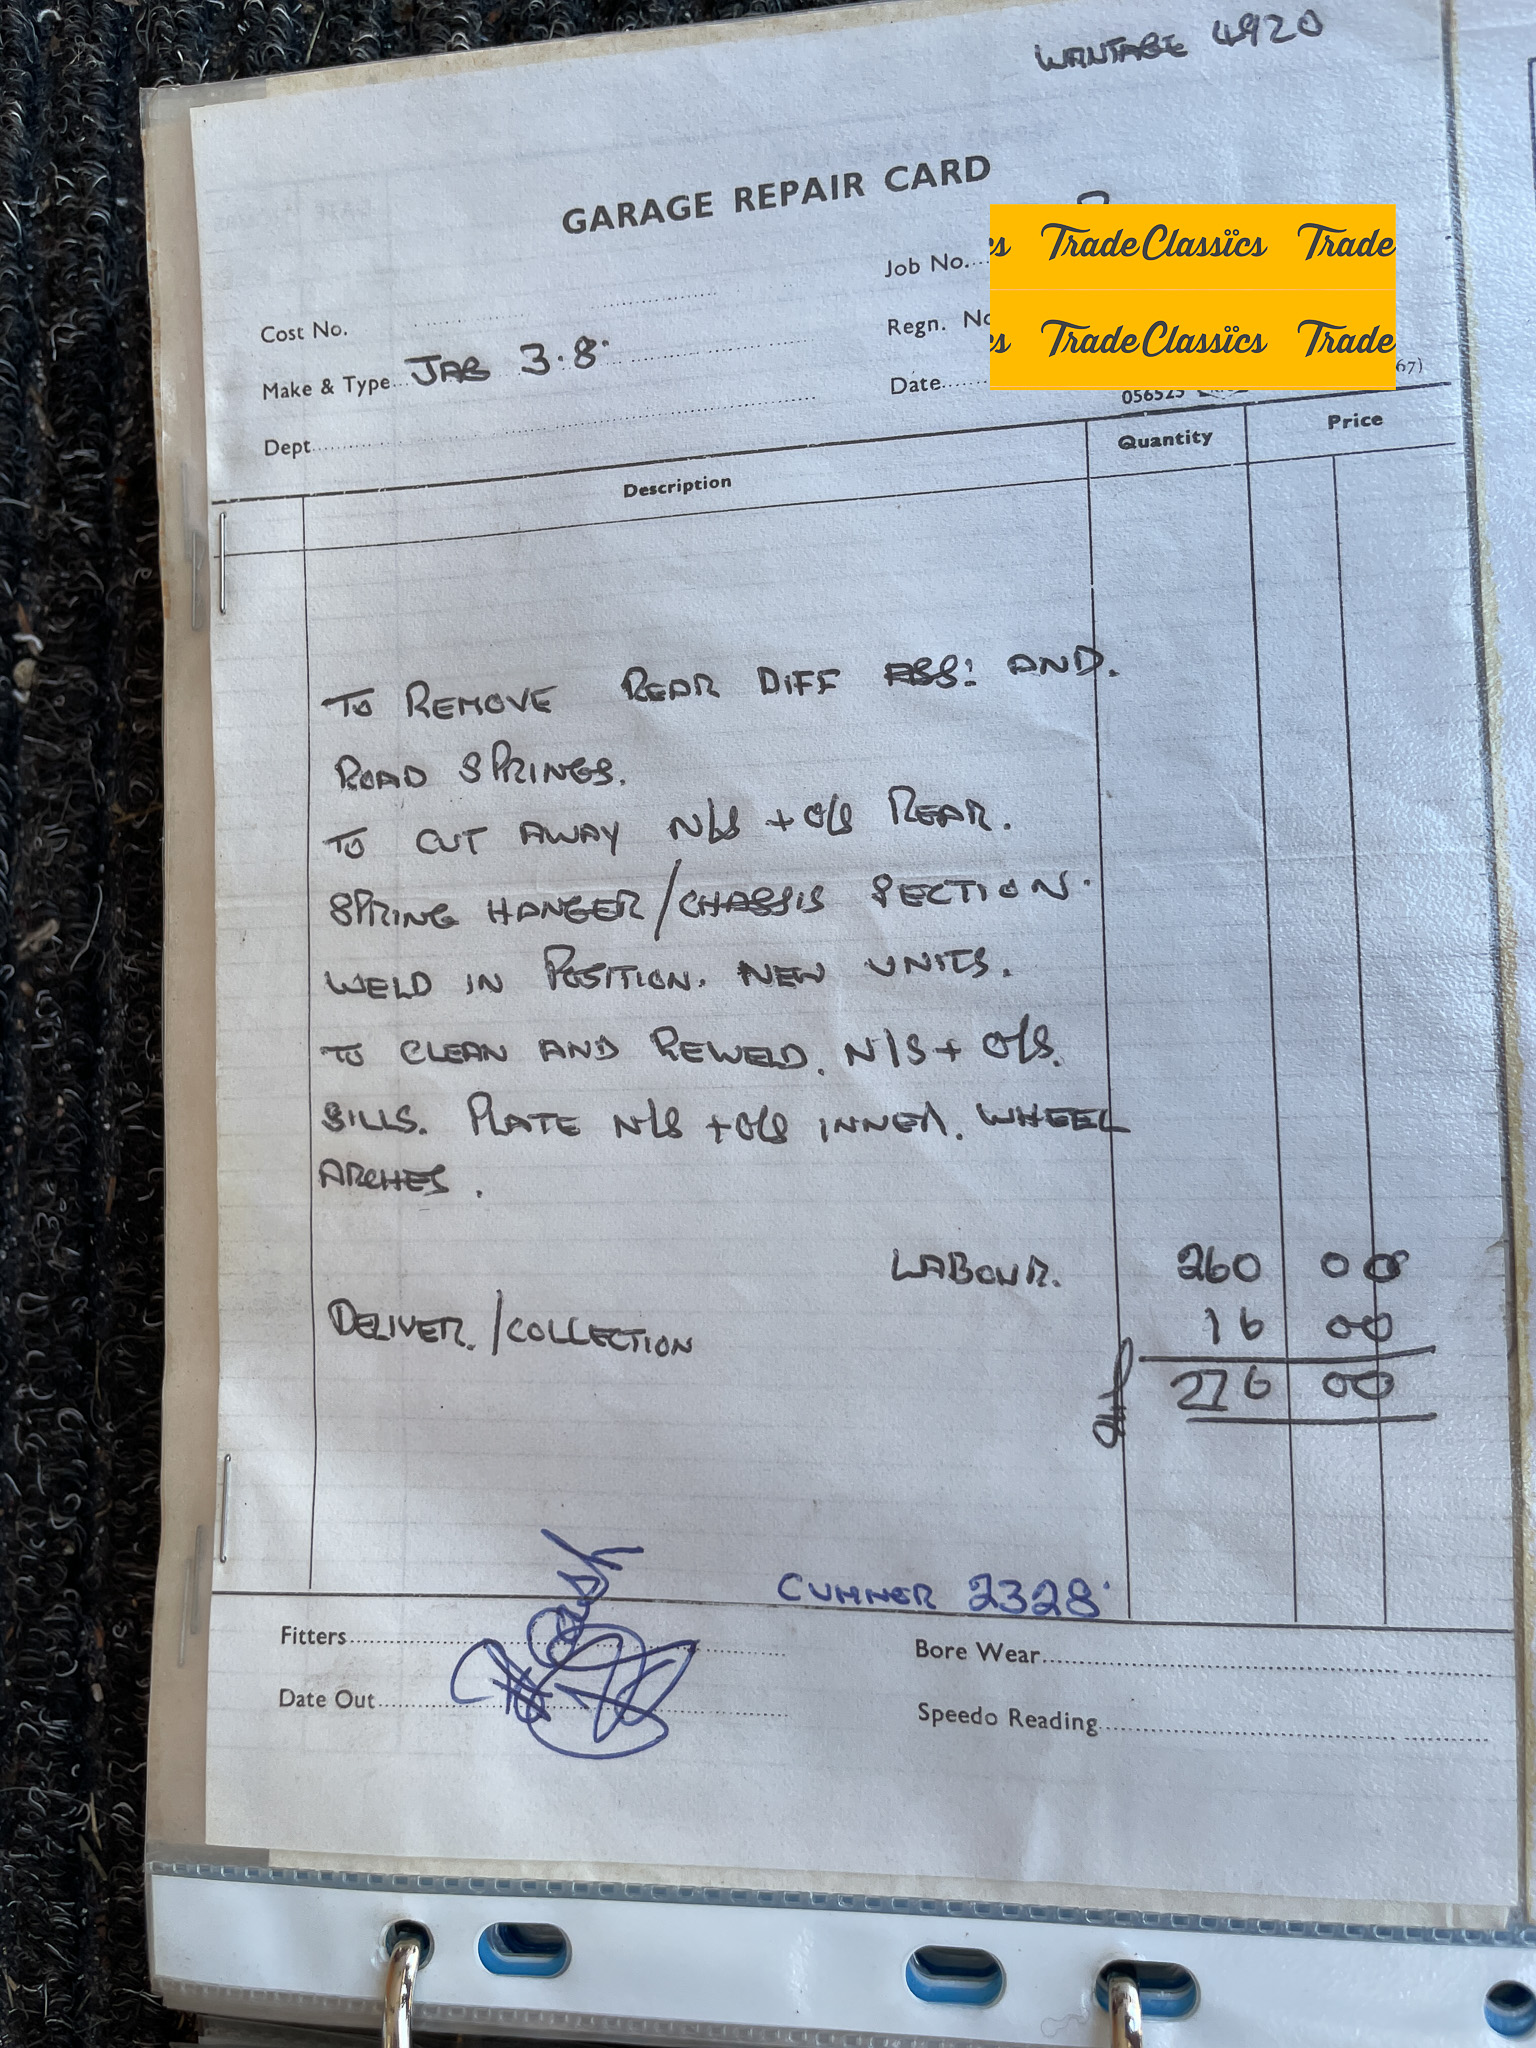 WANTAGE 4920
GARAGE REPAIR CARD
Job No.
Cost No.
Regn. No
Make & Type JAG 3.8
Date
67)
Dept
056525
Description Quantity Price
TO REMOVE REAR DIFF ASS: AND.
ROAD SPRINGS.
TO CUT AWAY N/S + O/S REAR.
SPRING HANGER/CHASSIS SECTION.
WELD IN POSITION. NEW UNITS.
TO CLEAN AND REWELD. N/S + O/S.
SILLS. PLATE N/S + O/S INNER. WHEEL
ARCHES.
LABOUR. 260 00
DELIVER./COLLECTION 16 00
276 00
CUMNER 2328.
Fitters
Bore Wear
Date Out
Speedo Reading
cs TradeClassïcs Trade
cs TradeClassïcs Trade